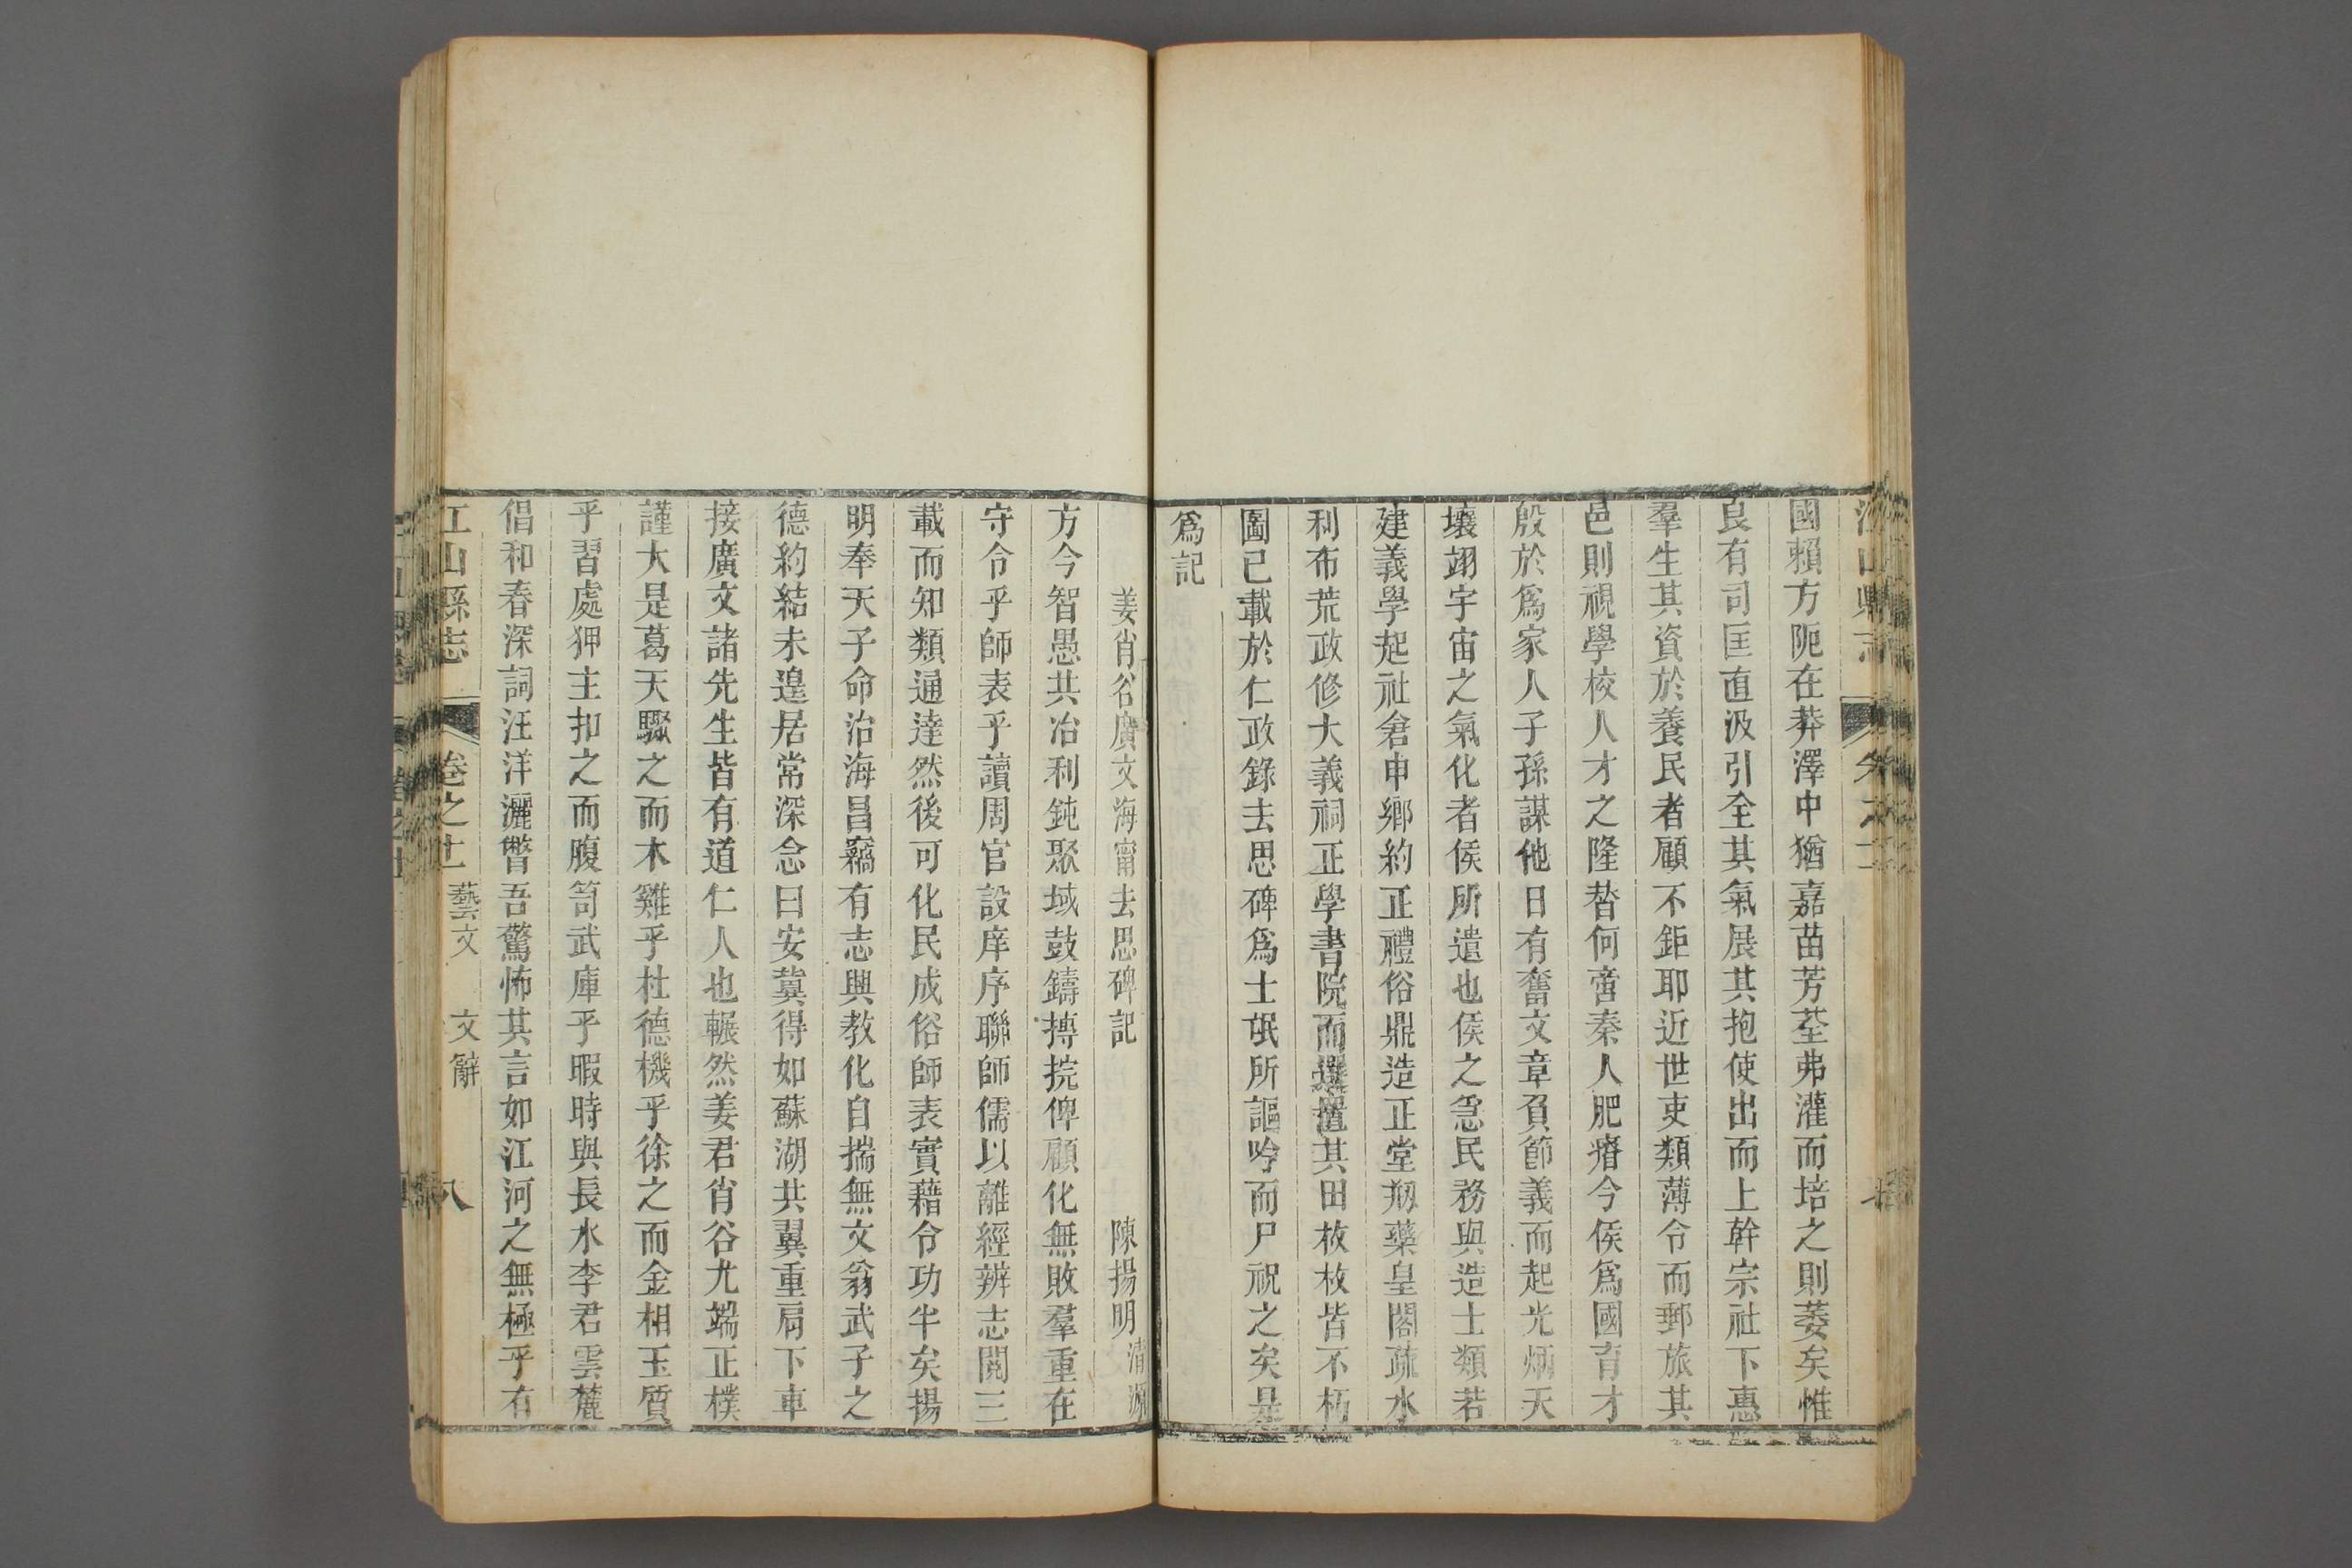 國賴方阨在莽澤中猶嘉苗芳荃弗灌而培之則萎矣惟
良有司匡直汲引全其氣展其抱使出而上幹宗社下惠
羣生其資於養民者顧不鉅耶近世吏類薄令而郵旅其
邑則視學校人才之隆替何啻秦人肥瘠今侯爲國育才
殷於爲家人子孫謀他日有奮文章負節義而起光炳天
壤翊宇宙之氣化者侯所遣也侯之急民務與造士類若
建義學起社倉申鄉約正禮俗鼎造正堂剏藥皇閣疏水
利布荒政修大義祠正學書院而選置其田枚枚皆不朽
圖已載於仁政錄去思碑爲士氓所謳吟而尸祝之矣是
爲記
姜肖谷廣文海甯去思碑記 陳揚明清源
方今智愚共冶利鈍聚域鼓鑄摶捖俾顧化無敗羣重在
守令乎師表乎讀周官設庠序聯師儒以離經辨志閱三
載而知類通達然後可化民成俗師表實藉令功半矣揚
明奉天子命治海昌竊有志興教化自揣無文翁武子之
德約結未遑居常深念曰安冀得如蘇湖共翼重肩下車
接廣文諸先生皆有道仁人也輾然姜君肖谷尤端正樸
謹大是葛天驟之而木雞乎杜德機乎徐之而金相玉質
乎習處狎主扣之而腹笥武庫乎暇時與長水李君雲麓
倡和春深詞汪洋灑瞥吾驚怖其言如江河之無極乎有
江山縣志 卷之十一 藝文 文辭 八